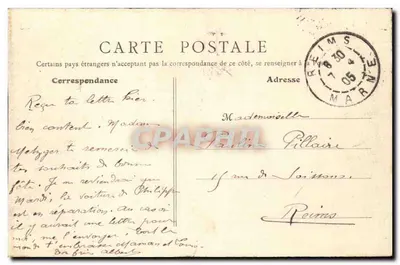 CARTE POSTALE
Certains pays étrangers n'acceptant pas la correspondance de ce côté, se renseigner à
Correspondance
Adresse
REIMS
8 30
7 4
05
MARNE
Reçu ta lettre hier
bien content. Madame
Metzger te remercie de
tes souhaits de bonne
fête. Je ne reviendrai que
Mardi, la voiture de Philippe
est en réparation. Au cas où
il y aurait une lettre pour
moi, me l'envoyer. Tout le
monde t'embrasse Maman et
ton frère Albert
Mademoiselle
Pillaire
15 rue de Soissons
Reims
CPARAMA.COM